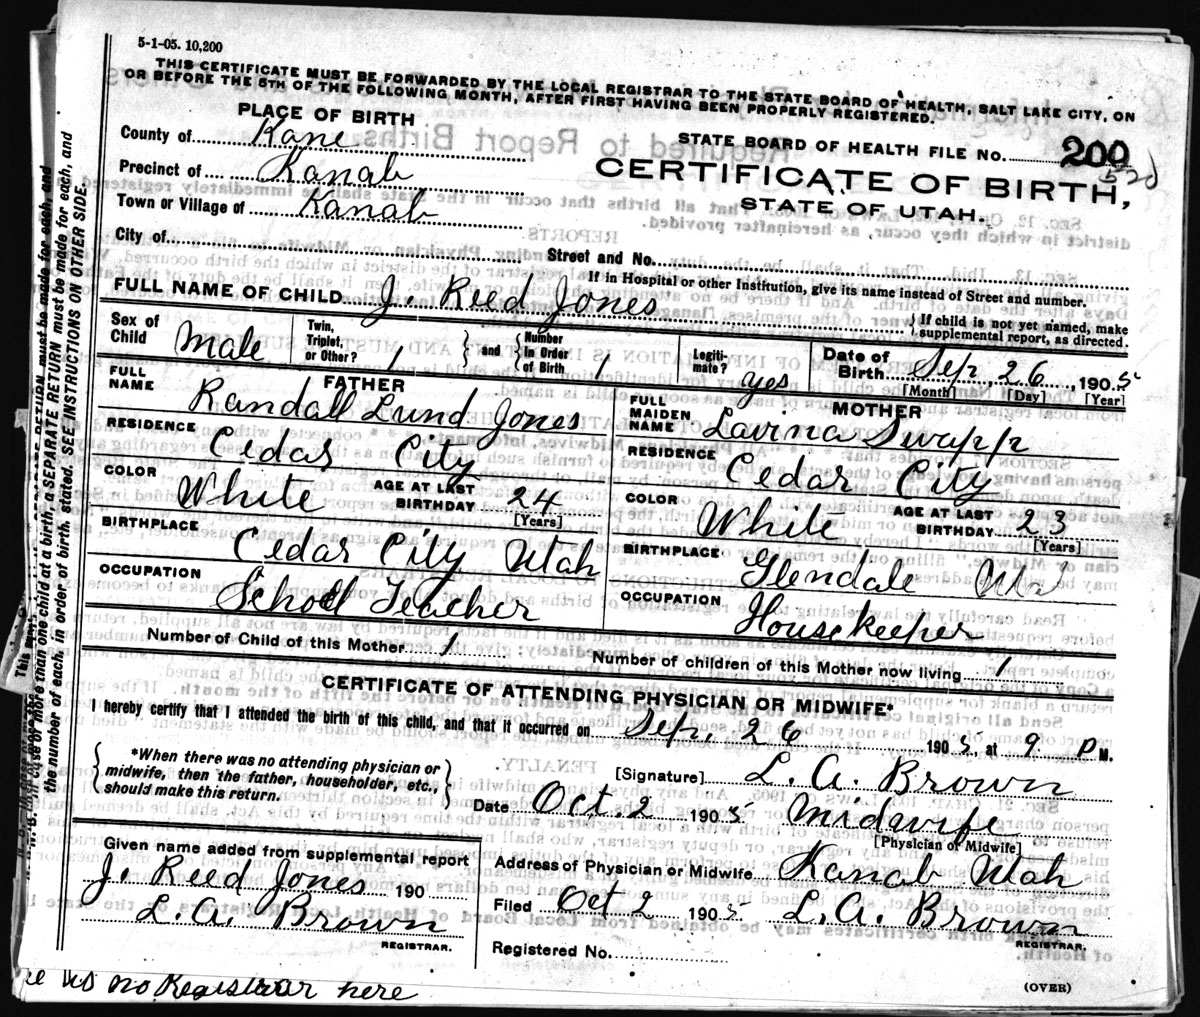 5-1-05. 10,200
THIS CERTIFICATE MUST BE FORWARDED BY THE LOCAL REGISTRAR TO THE STATE BOARD OF HEALTH, SALT LAKE CITY, ON
OR BEFORE THE 5TH OF THE FOLLOWING MONTH, AFTER FIRST HAVING BEEN PROPERLY REGISTERED.
PLACE OF BIRTH
County of Kane
STATE BOARD OF HEALTH FILE No. 200
520
Precinct of Kanab
CERTIFICATE OF BIRTH,
Town or Village of Kanab
STATE OF UTAH.
City of
Street and No.
If in Hospital or other Institution, give its name instead of Street and number.
FULL NAME OF CHILD J. Reed Jones
{If child is not yet named, make
supplemental report, as directed.
Sex of Child Male
Twin, Triplet, or Other? 1
{ and { Number in Order of Birth 1
Legiti-mate? yes
Date of Birth Sep, 26, 1905
[Month] [Day] [Year]
FATHER
FULL NAME Randall Lund Jones
MOTHER
FULL MAIDEN NAME Lavina Swapp
RESIDENCE Cedar City
RESIDENCE Cedar City
COLOR White
AGE AT LAST BIRTHDAY 24
[Years]
COLOR White
AGE AT LAST BIRTHDAY 23
[Years]
BIRTHPLACE Cedar City Utah
BIRTHPLACE Glendale Uth
OCCUPATION School Teacher
OCCUPATION Housekeeper
Number of Child of this Mother 1
Number of children of this Mother now living 1
CERTIFICATE OF ATTENDING PHYSICIAN OR MIDWIFE*
I hereby certify that I attended the birth of this child, and that it occurred on Sep. 26 1905, at 9 P M.
{*When there was no attending physician or
midwife, then the father, householder, etc.,
should make this return.}
[Signature] L. A. Brown
Date Oct. 2 1905 Midwife
[Physician or Midwife]
Given name added from supplemental report
J. Reed Jones 190
L. A. Brown
REGISTRAR.
Address of Physician or Midwife Kanab Utah
Filed Oct 2 1905 L. A. Brown
REGISTRAR.
Registered No.
(OVER)
no Registrar here
in case of more than one child at a birth, a SEPARATE RETURN must be made for each, and
the number of each, in order of birth, stated. SEE INSTRUCTIONS ON OTHER SIDE.